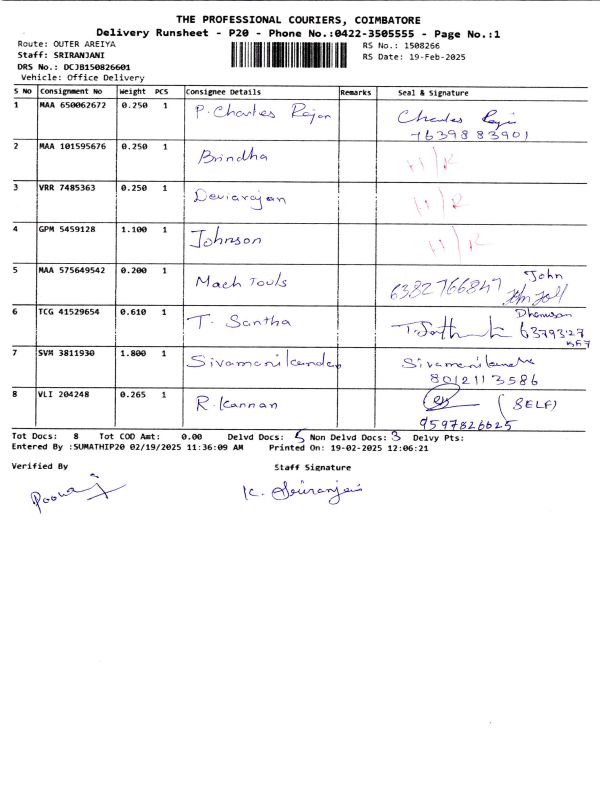 THE PROFESSIONAL COURIERS, COIMBATORE
Delivery Runsheet - P20 - Phone No.:0422-3505555 - Page No.:1
Route: OUTER AREIYA RS No.: 1508266
Staff: SRIRANJANI RS Date: 19-Feb-2025
DRS No.: DCJB150826601
Vehicle: Office Delivery
S NO Consignment No Weight PCS Consignee Details Remarks Seal & Signature
1 MAA 650062672 0.250 1 P. Charles Rajan Charles Raja
7639883901
2 MAA 101595676 0.250 1 Brindha
3 VRR 7485363 0.250 1 Deviarajan
4 GPM 5459128 1.100 1 Johnson
5 MAA 575649542 0.200 1 Mach Touls 6382766847 John
6 TCG 41529654 0.610 1 T. Santha
7 SVM 3811930 1.800 1 Sivamanikandan Sivamanikandan
8012113586
8 VLI 204248 0.265 1 R. Kannan (SELF)
9597826625
Tot Docs: 8 Tot COD Amt: 0.00 Delvd Docs: 5 Non Delvd Docs: 3 Delvy Pts:
Entered By :SUMATHIP20 02/19/2025 11:36:09 AM Printed On: 19-02-2025 12:06:21
Verified By Staff Signature
K. Sriranjani